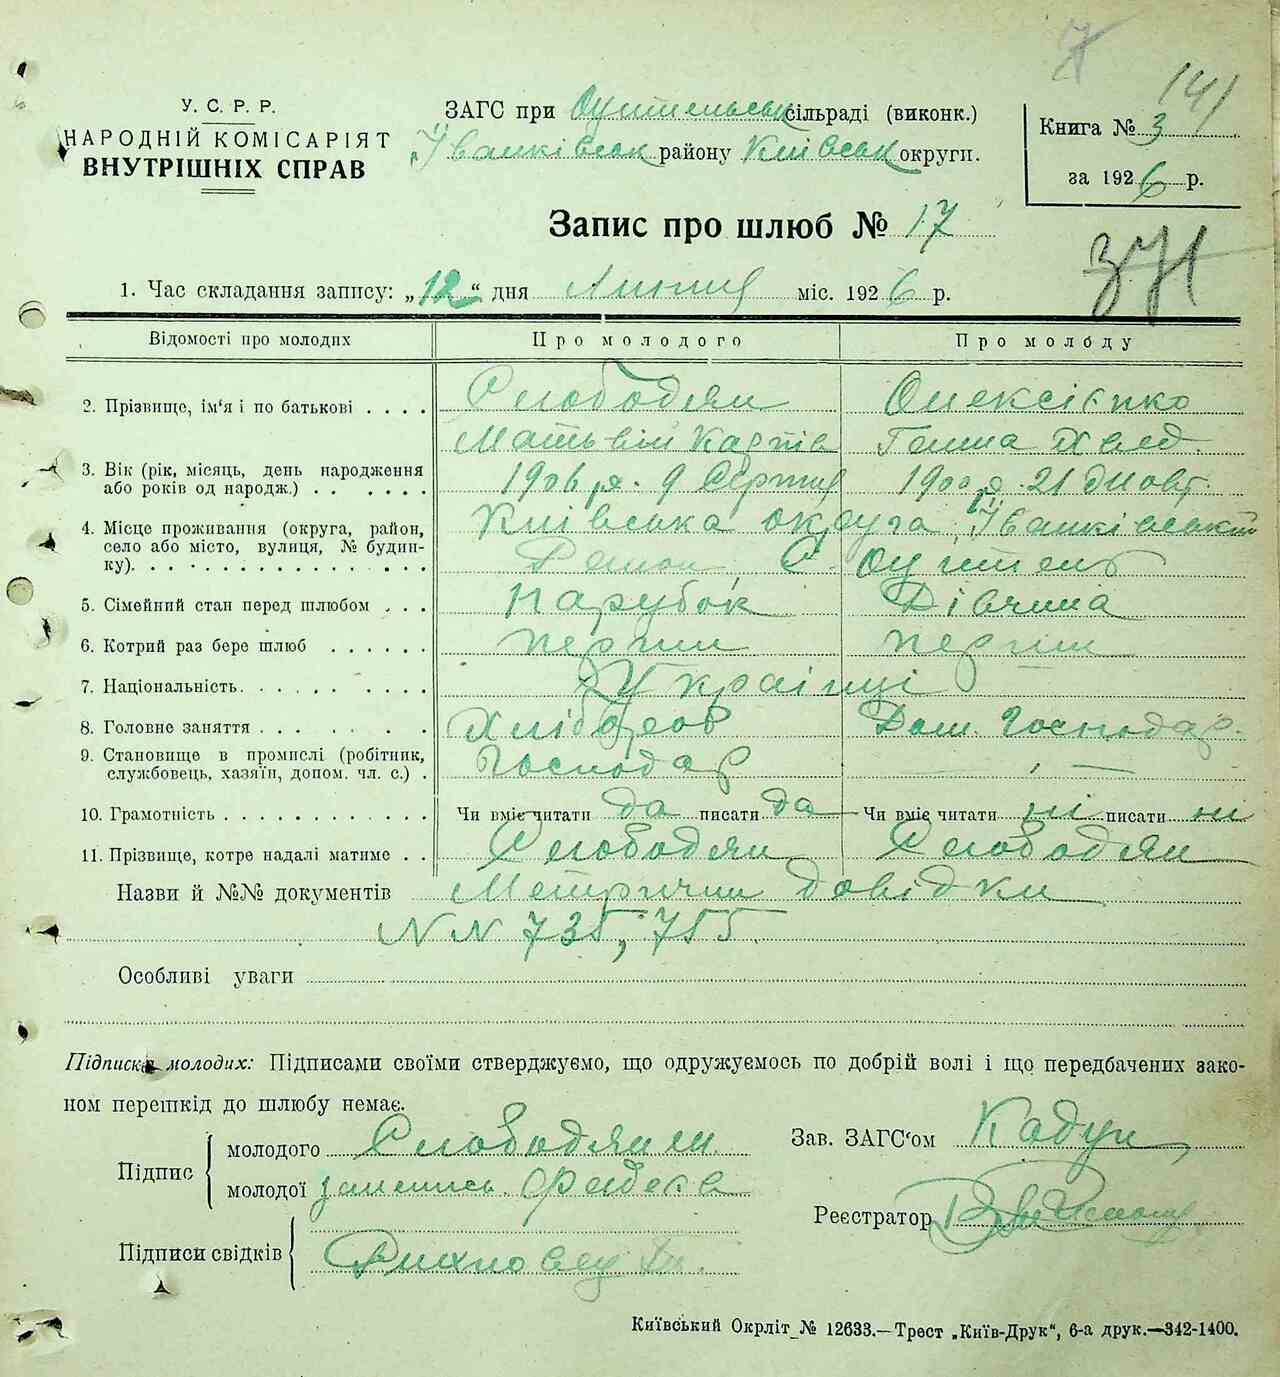 7
141
У. С. Р. Р.
НАРОДНІЙ КОМІСАРІЯТ
ВНУТРІШНІХ СПРАВ
ЗАГС при сільраді (виконк.)
району Київськ округи.
Книга № 3
за 1926 р.
Запис про шлюб № 17
371
1. Час складання запису: „12“ дня Липня міс. 1926 р.
Відомості про молодих Про молодого Про молоду
2. Прізвище, ім‘я і по батькові . . . . Слободян Олексієнко
Матьвій Карпів Ганна
3. Вік (рік, місяць, день народження 1906 р. 9 Серпня 1900 р. 21
або років од народж.) . . . . . .
4. Місце проживання (округа, район, Київська округа,
село або місто, вулиця, № будин- Район, С.
ку). . . . . . . . . . . . . . .
5. Сімейний стан перед шлюбом . . . Парубок Дівчина
6. Котрий раз бере шлюб . . . . . . перший перший
7. Національність. . . . . . . . . . Українці
8. Головне заняття . . . . . . . . . Хлібороб Дом. Господар.
9. Становище в промислі (робітник, Господар — „ —
службовець, хазяїн, допом. чл. с.) .
10. Грамотність . . . . . . . . . . . Чи вміє читати да писати да Чи вміє читати ні писати ні
11. Прізвище, котре надалі матиме . . Слободян Слободян
Назви й №№ документів Метричні довідки
NN 735, 755.
Особливі уваги
Підписка молодих: Підписами своїми стверджуємо, що одружуємось по добрій волі і що передбачених зако-
ном перешкід до шлюбу немає.
Підпис
молодого Слободян М.
молодої
Зав. ЗАГС‘ом
Реєстратор
Підписи свідків
Київський Окрліт № 12633.—Трест „Київ-Друк“, 6-а друк.—342-1400.